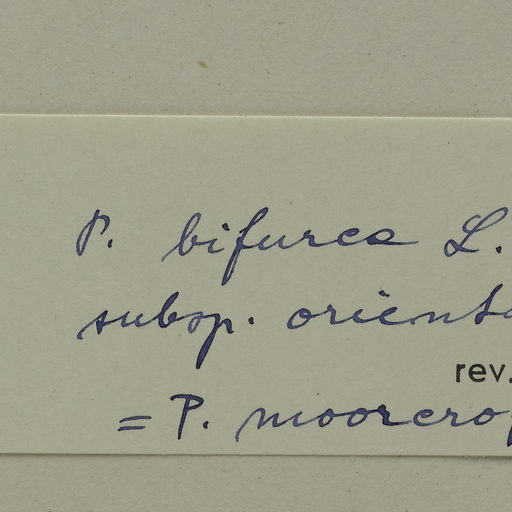 P. bifurca L.
subsp. orienta
rev.
= P. moorcrof